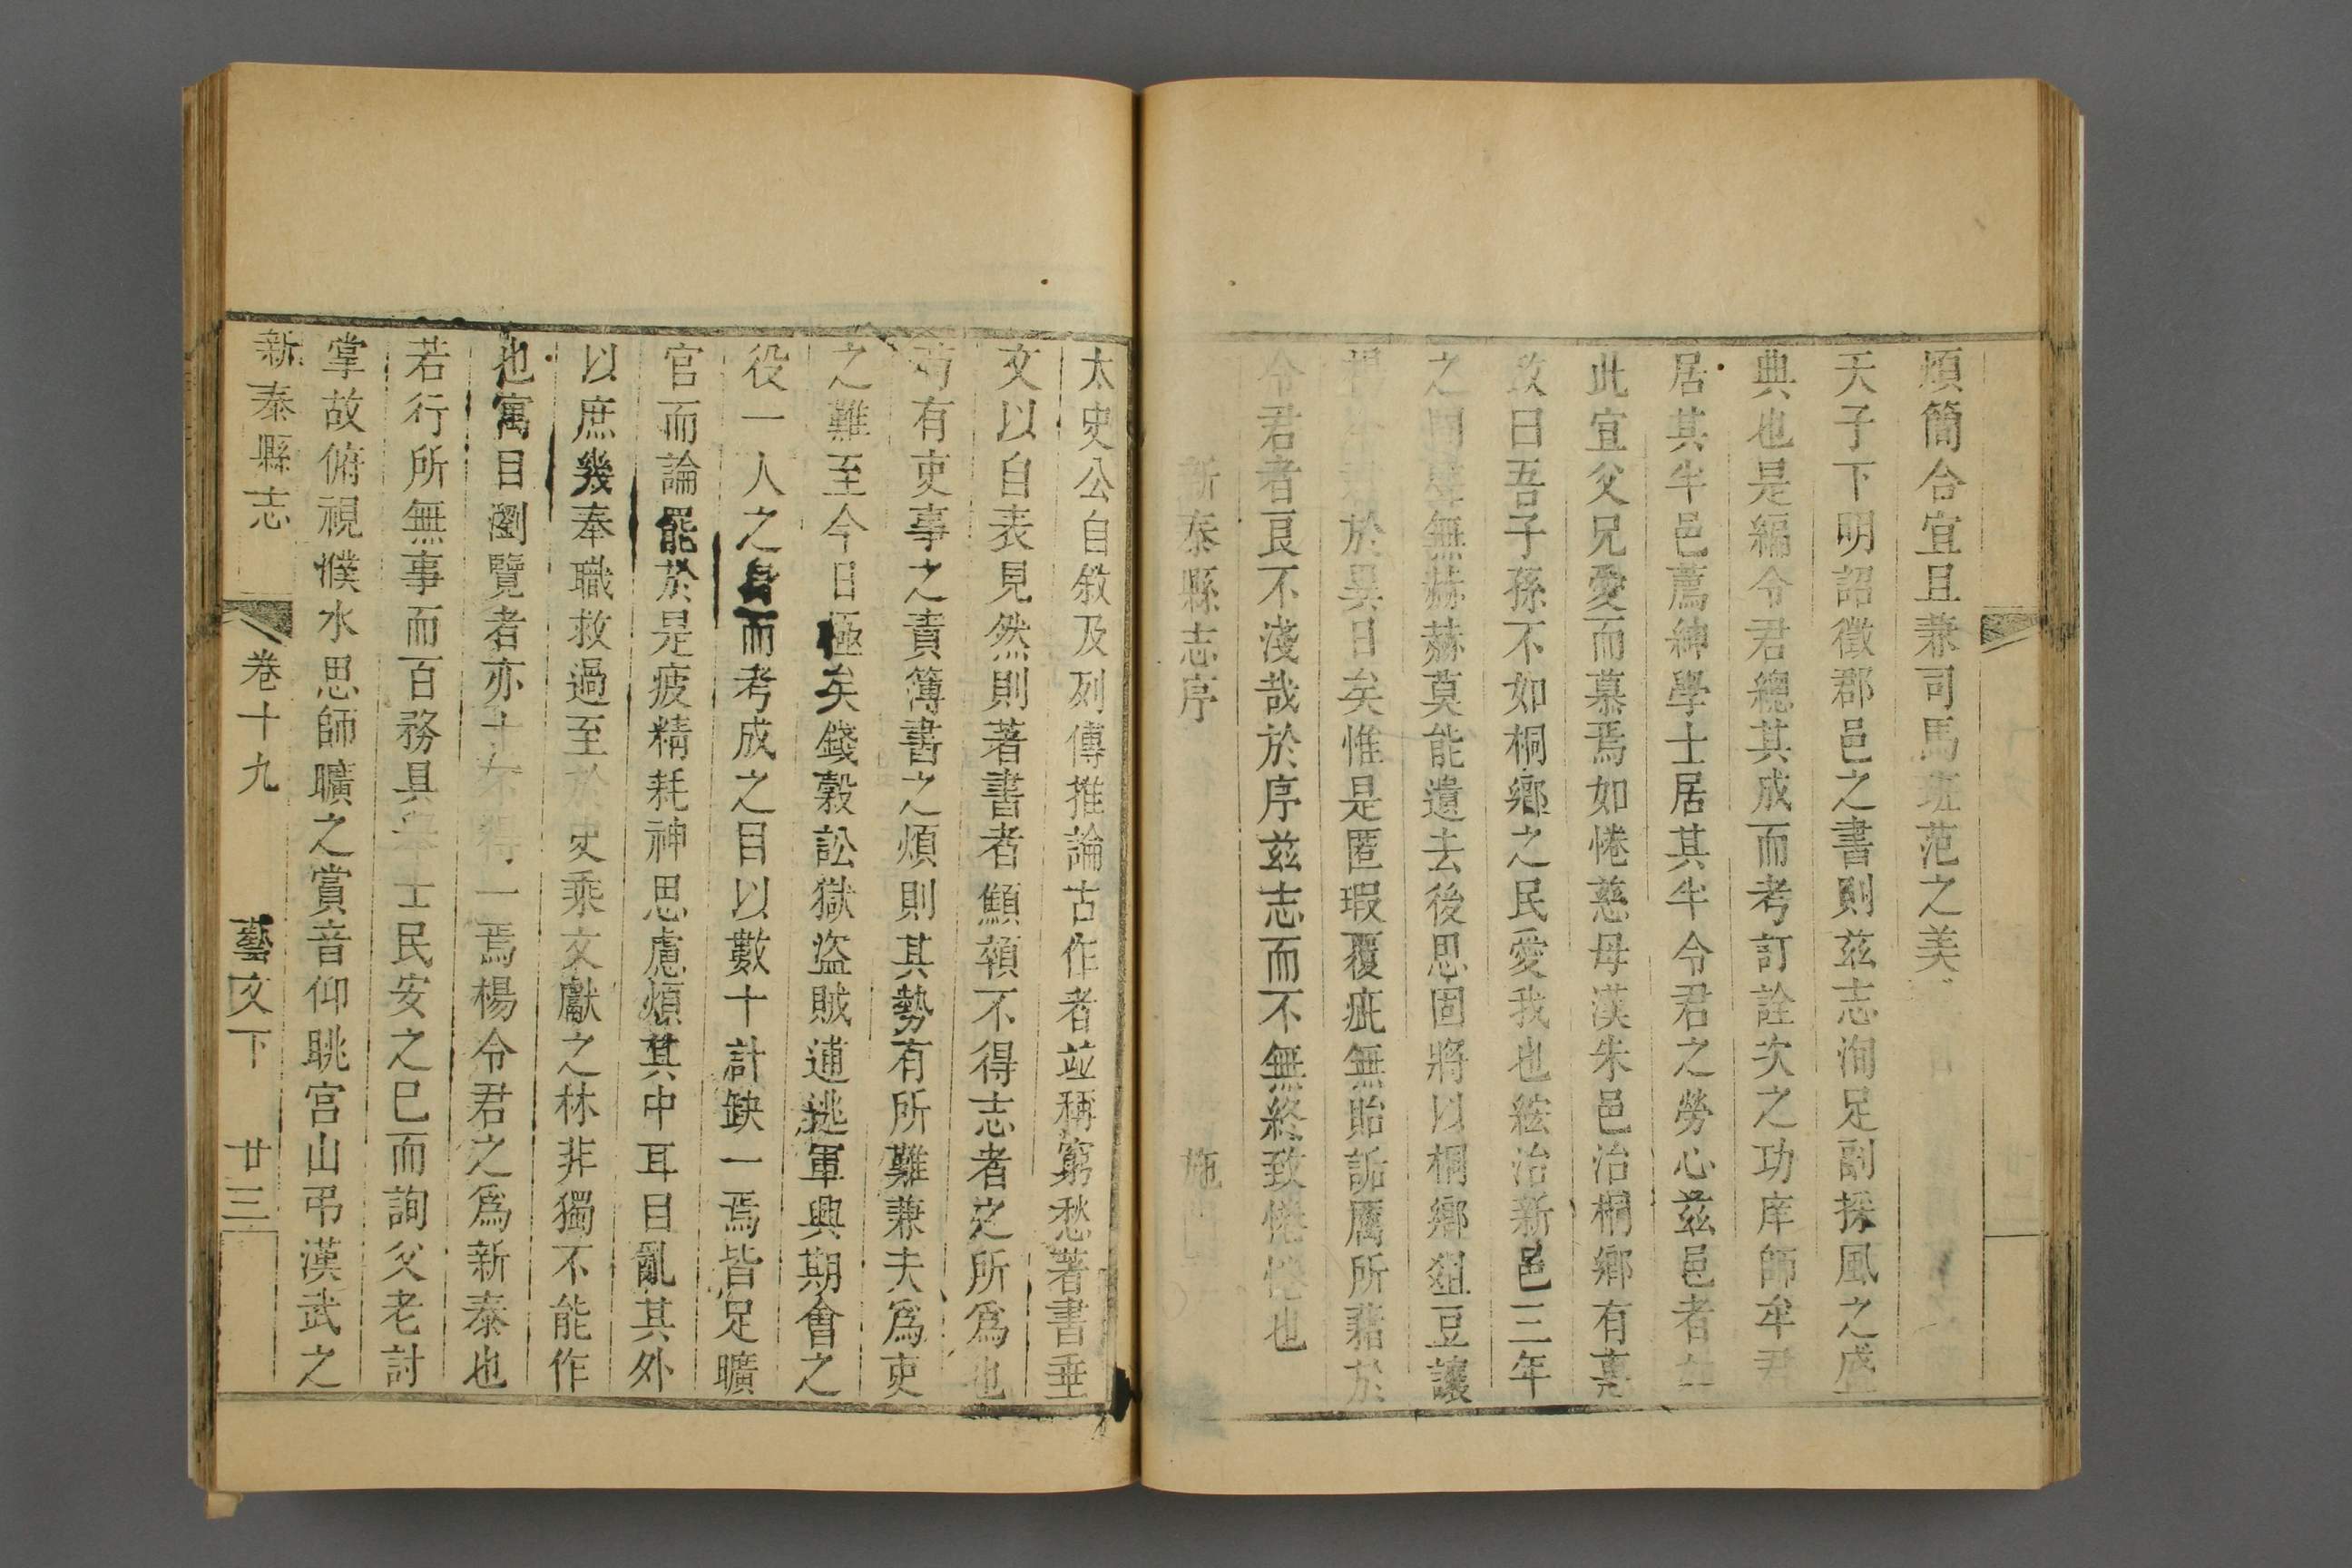 煩簡合宜且兼司馬班范之美
天子下明詔徵郡邑之書則兹志洵足副採風之盛
典也是編令君總其成而考訂詮次之功庠師牟君
居其半邑薦紳學士居其半令君之勞心兹邑者
此宜父兄愛而慕焉如惓慈母漢朱邑治桐鄉有惠
政曰吾子孫不如桐鄉之民愛我也絃治新邑三年
之間無赫赫莫能遺去後思固將以桐鄉俎豆讓
於異日矣惟是匿瑕覆疵無貽詬厲所藉於
令君者良不淺哉於序兹志而不無終致惓惓也
新泰縣志序 施
太史公自敘及列傳推論古作者並稱窮愁著書垂
文以自表見然則著書者顦顇不得志者之所爲也
苟有吏事之責簿書之煩則其勢有所難兼夫爲吏
之難至今日極矣錢穀訟獄盜賊逋逃軍興期會之
役一人之身而考成之目以數十計缺一焉皆足曠
官而論罷於是疲精耗神思慮煩其中耳目亂其外
以庶幾奉職救過至於史乘文獻之林非獨不能作
也寓目瀏覽者亦十不得一焉楊令君之爲新泰也
若行所無事而百務具舉士民安之巳而詢父老討
掌故俯視濮水思師曠之賞音仰眺宫山弔漢武之
新泰縣志 卷十九 藝文下 廿三